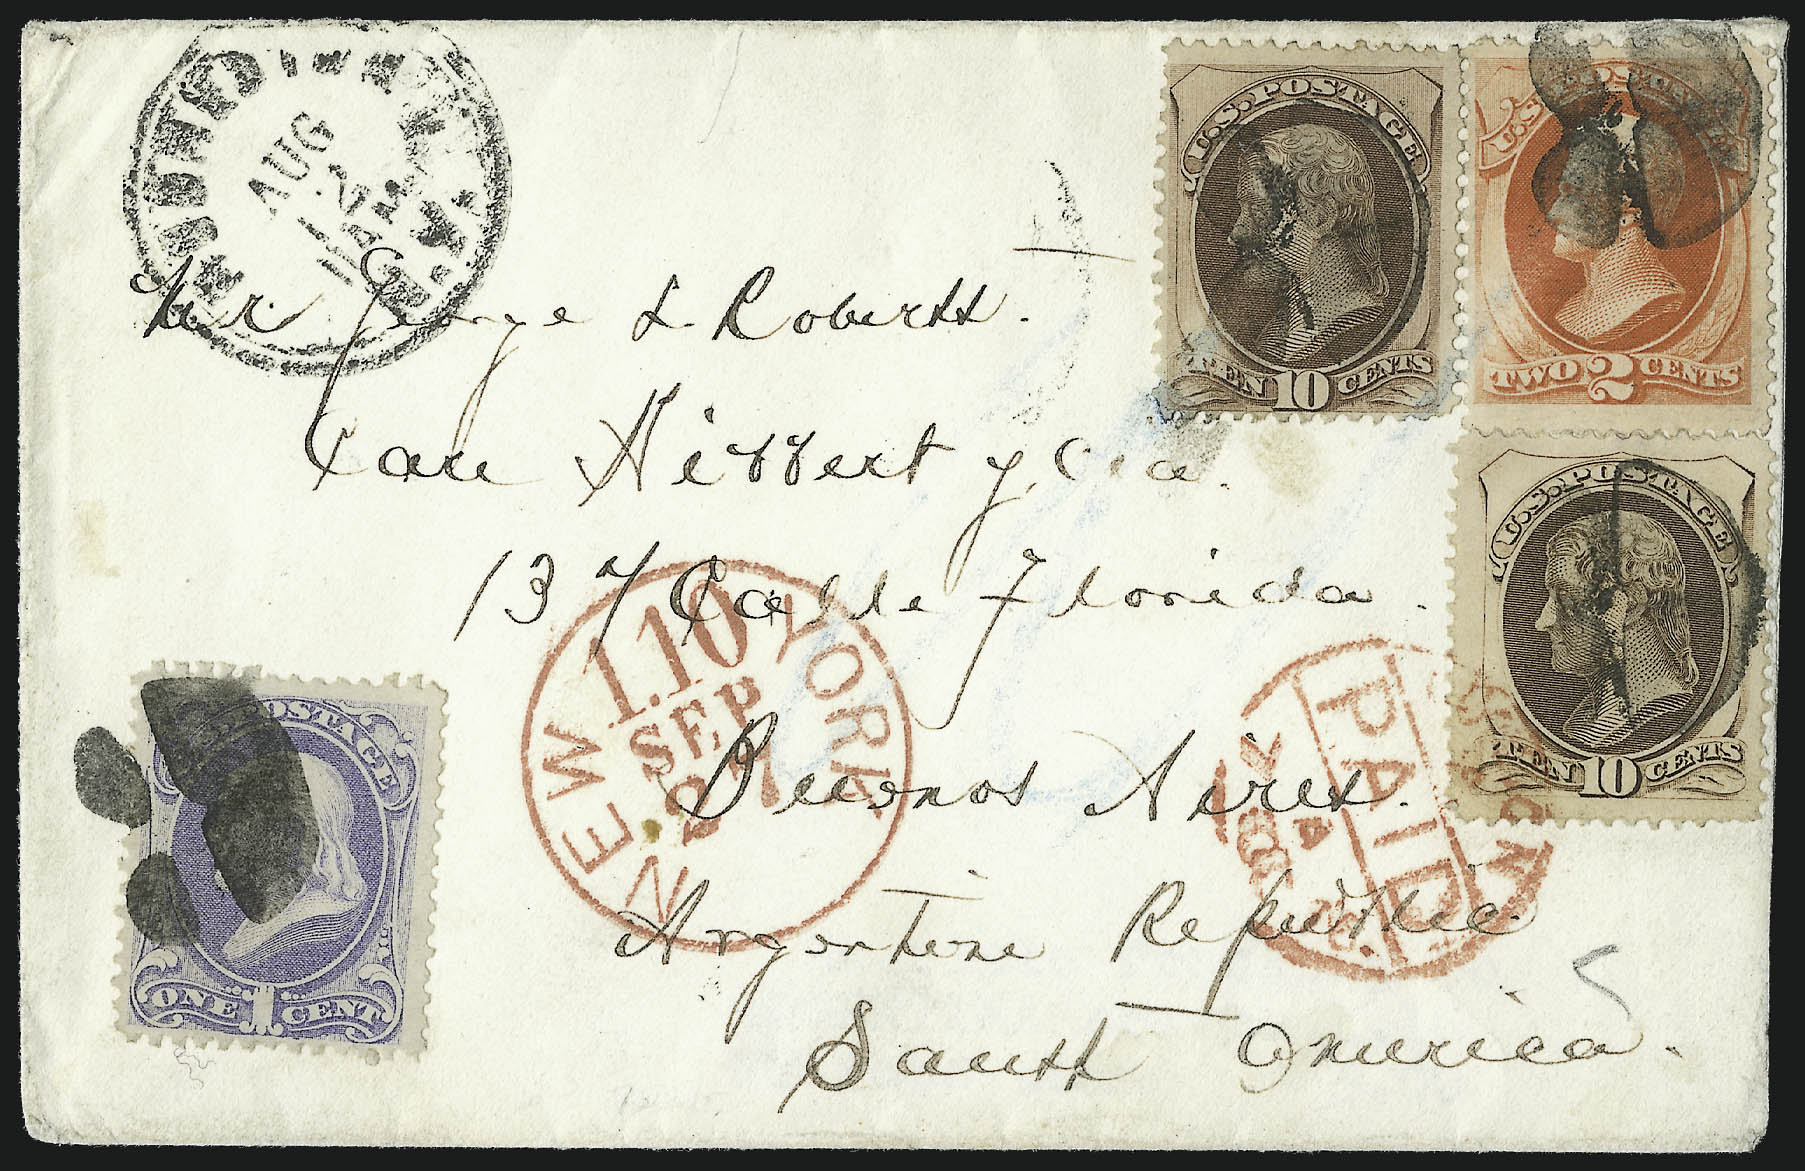 AUG
11 AM
U.S. POSTAGE
TEN 10 CENTS
TWO 2 CENTS
Mr. George L Roberts.
Care Hibbert y Cia.
U.S. POSTAGE
TEN 10 CENTS
137 Calle Florida.
NEW YORK
1.10
SEP
2
PAID
Buenos Aires.
Argentine Republic.
South America.
POSTAGE
ONE 1 CENT